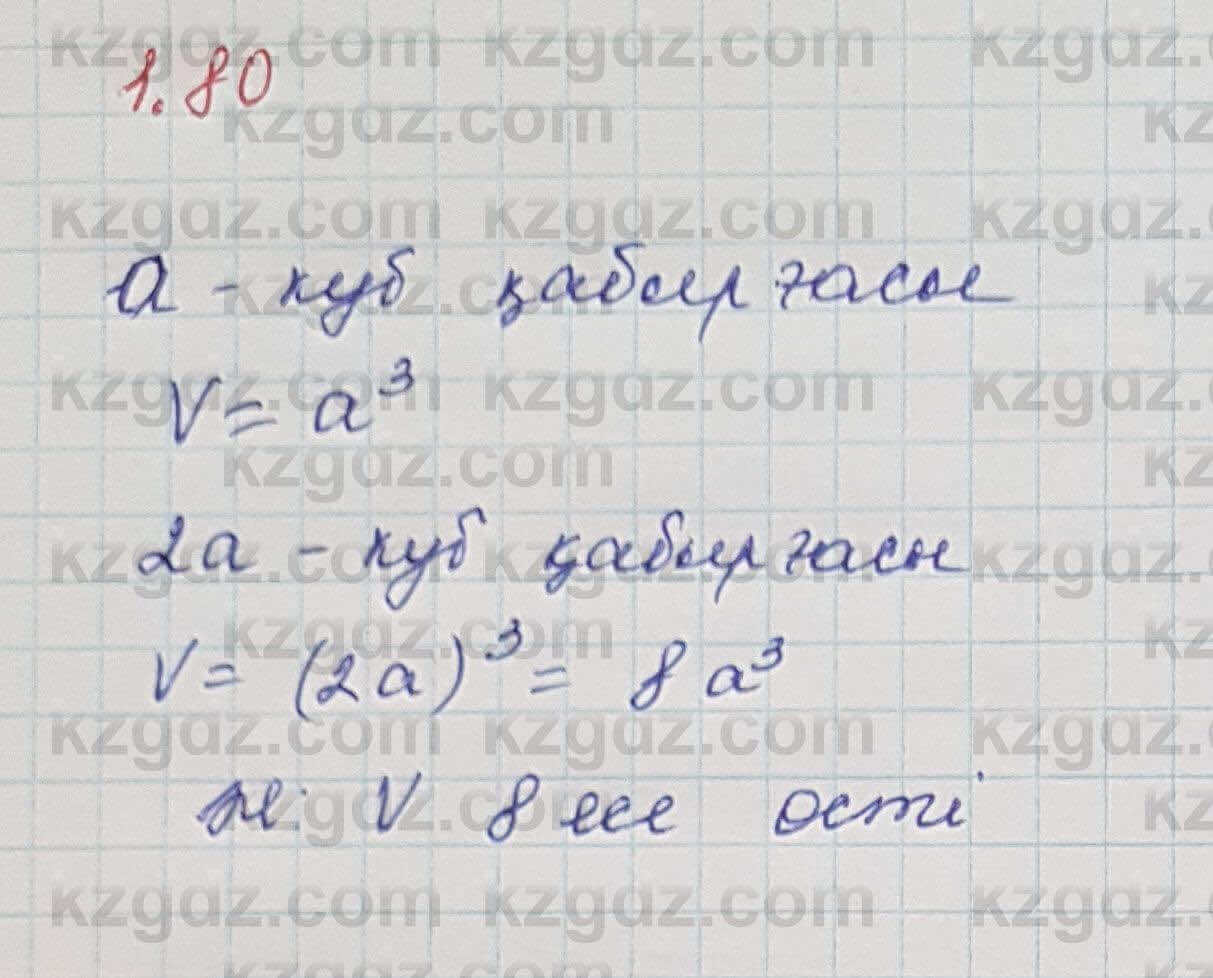 1.80
a - куб қабырғасы
V = a³
2a - куб қабырғасы
V = (2a)³ = 8a³
Ж: V 8 есе өсті